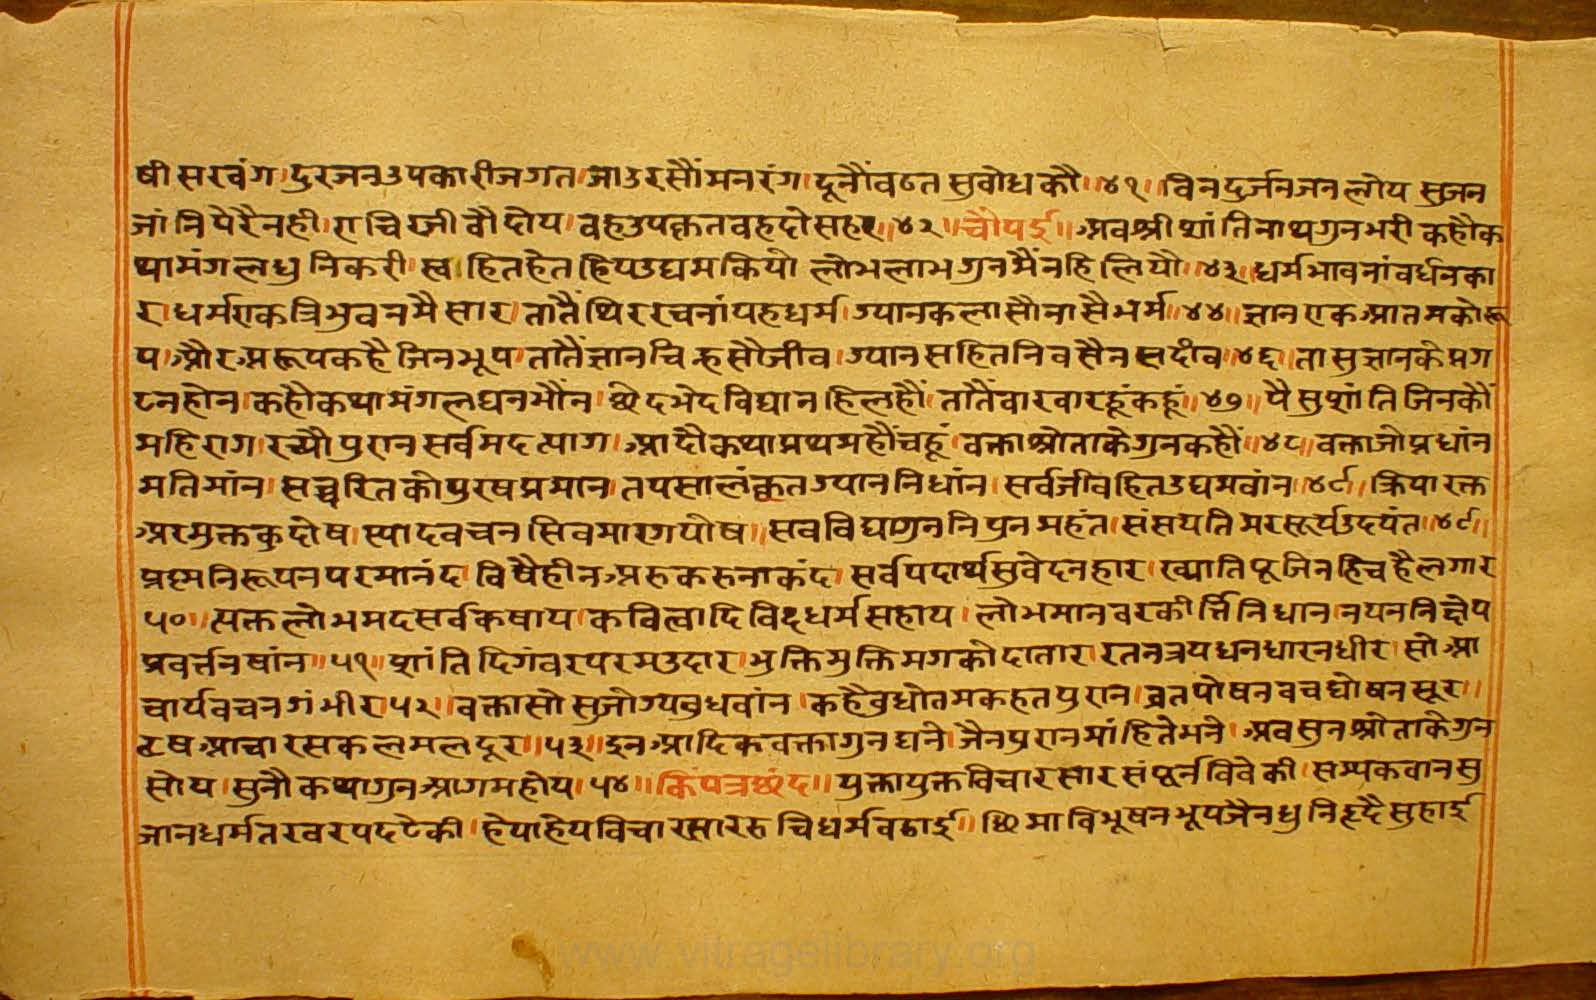 षी सरवंग। दुरजन उपकारी जगत। जा उर सौं मन रंग। दूनौं वठत सुवोध कौ॥४१॥ विन दुर्जन जन लोय सुजन
जांनि पेरै नही। राचि रजी वौ दोय। वह उपकृत वह दो सहर॥४२॥ चौपई॥ अव श्री शांतिनाथ गुन भरी कहौ क
था मंगल धुनि करी। स्व हित हेत हिय उद्यम कियौ लोभ लाभ गुन मैं नहि लियौ॥४३॥ धर्म भावनां वर्धन का
र। धर्म एक त्रिभुवन मै सार। तातैं थिर रचनां यह धर्म। ग्यान कला सौ नासै भर्म॥४४॥ ज्ञान एक आतम को रू
प। और अरूपक है जिन भूप। तातैं ज्ञान चिह्न सौ जीव। ग्यान सहित निवसैं न सदीव॥४६॥ तासु ज्ञान के प्रग
टन होन। कहौ कथा मंगल घन भौंन। छेद भेद विद्या नहि लहौं। तातैं वार वार हूं कहूं॥४७॥ पै सु शांति जिन कौं
महि राग। रच्यौ पुरान सर्व मद त्याग। आदौ कथा प्रथम हौं चहूं। वक्ता श्रोता के गुन कहौं॥४८॥ वक्ता जो प्रधांन
मतिमांन। सच्चरित को पुरष प्रमान। तप सालंकृत ग्यान निधांन। सर्व जीव हित उद्यमवांन॥४९॥ क्रिया रक्त
अर मुक्त कुदोष। स्याद वचन सिव मारग पोष॥ सव विद्या गुन निपुन महंत। संसय तिमर सूर्य उदयंत॥४९॥
प्रश्म निरूपन परमानंद। विषै हीन अरु करुना कंद। सर्व पदार्थ सुवेदनहार। ख्याति पूजि नहि चहै लगार
५०॥ त्यक्त लोभ मद सर्व कषाय। कवित्वादि विद धर्म सहाय। लोभमान वर कीर्त्ति निधान। नय ननिक्षेप
प्रवर्त्तन षांन॥५१॥ शांति दिगंवर परम उदार। भुक्ति मुक्ति मग को दातार। रतनत्रय धन धारन धीर। सो आ
चार्य वचन गंभीर।५२॥ वक्ता सो सुजोग्य वुधवांन। कहै वुधोतम कहत पुरान। व्रत पोषन वच घोषन सूर॥
टष आचार सकल मल दूर॥५३॥ इन आदिक वक्ता गुन घने। जैन पुरान मांहि ते भने। अव सुन श्रोता के गुन
सोय। सुनौ कथा गुन आगम होय।५४॥ किंपत्र छंद॥ युक्तायुक्त विचार सार संपूर्न विवेकी। सम्यकवान सु
जान धर्म तरवर पद टेकी। हेयाहेय विचार सार रुचि धर्म वठाई॥ छिमा विभूषन भूप जैन धुनि हृदै सुहाई